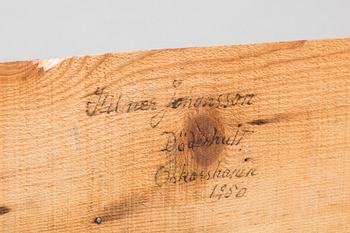 Hilmer Jonansson
Döderhult
Oskarshamn
1950